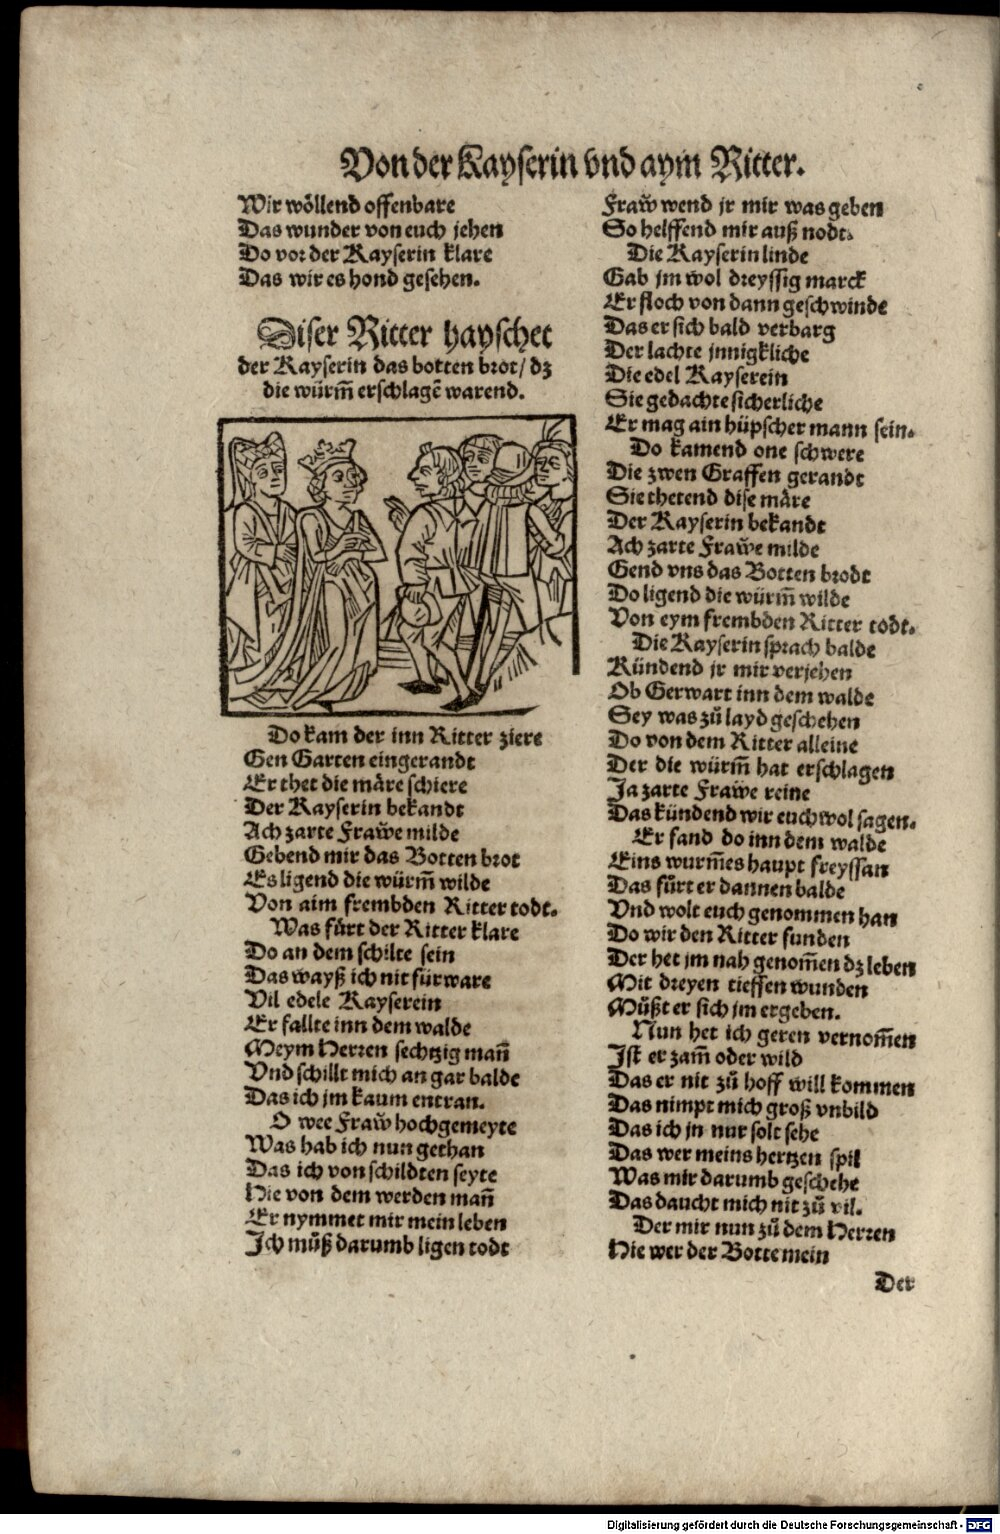 Von der Kayserin vnd aym Ritter.
Wir wöllend offenbare
Das wunder von euch jehen
Do vor der Kayserin klare
Das wir es hond gesehen.
Diser Ritter hayschet
der Kayserin das botten brot / dz
die würm̄ erschlagē warend.
Do kam der inn Ritter ziere
Gen Garten eingerandt
Er thet die märe schiere
Der Kayserin bekandt
Ach zarte Fraw̃e milde
Gebend mir das Botten brot
Es ligend die würm̄ wilde
Von aim frembden Ritter todt.
Was fůrt der Ritter klare
Do an dem schilte sein
Das wayß ich nit fürware
Vil edele Kayserein
Er fallte inn dem walde
Meym Herren sechtzig man̄
Vnd schillt mich an gar balde
Das ich jm kaum entran.
O wee Fraw̃ hochgemeyte
Was hab ich nun gethan
Das ich von schildten seyte
Hie von dem werden man̄
Er nymmet mir mein leben
Ich můß darumb ligen todt
Fraw̃ wend jr mir was geben
So helffend mir auß nodt.
Die Kayserin linde
Gab jm wol dreyssig marck
Er floch von dann geschwinde
Das er sich bald verbarg
Der lachte jnnigkliche
Die edel Kayserein
Sie gedachte sicherliche
Er mag ain hüpscher mann sein.
Do kamend one schwere
Die zwen Graffen gerandt
Sie thetend dise märe
Der Kayserin bekandt
Ach zarte Fraw̃e milde
Gend vns das Botten brodt
Do ligend die würm̄ wilde
Von eym frembden Ritter todt.
Die Kayserin sprach balde
Kündend jr mir verjehen
Ob Gerwart inn dem walde
Sey was zů layd geschehen
Do von dem Ritter alleine
Der die würm̄ hat erschlagen
Ja zarte Fraw̃e reine
Das kündend wir euch wol sagen.
Er fand do inn dem walde
Eins wurm̄es haupt freyssan
Das fůrt er dannen balde
Vnd wolt euch genommen han
Do wir den Ritter funden
Der het jm nah genom̄en dz leben
Mit dreyen tieffen wunden
Můßt er sich jm ergeben.
Nun het ich geren vernom̄en
Ist er zam̄ oder wild
Das er nit zů hoff will kommen
Das nimpt mich groß vnbild
Das ich jn nur solt sehe
Das wer meins hertzen spil
Was mir darumb geschehe
Das daucht mich nit zů vil.
Der mir nun zů dem Herren
Hie wer der Botte mein
Der
Digitalisierung gefördert durch die Deutsche Forschungsgemeinschaft - DFG